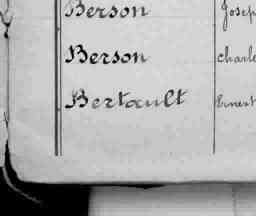 Berson Josep
Berson Charle
Bertault Ernest